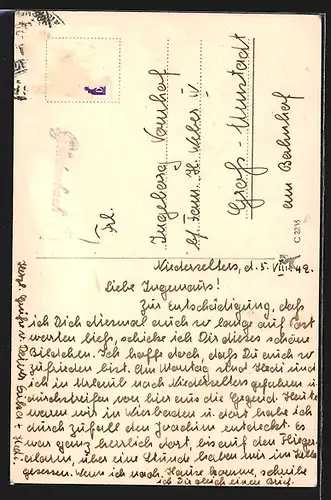 Frl.
Ingeborg Vomhof
b/ Fam. H. Weber IV
Groß-Umstadt
am Bahnhof
C 2235
Niederselters, d. 5. VIII. 42.
Liebe Ingemaus!
Zur Entschädigung, daß
ich Dich diesmal auch so lange auf Post
warten ließ, schicke ich Dir dieses schöne
Bildchen. Ich hoffe doch, daß Du auch so
zufrieden bist. Am Montag sind Hedi und
ich in Urlaub nach Niederselters gefahren u.
durchstreifen von hier aus die Gegend. Heute
waren wir in Wiesbaden u. dort habe ich
durch Zufall den Joachim entdeckt. Es
war ganz herrlich dort, bis auf den Flieger-
alarm, über eine Stunde haben wir im Keller
gesessen. Wenn ich nach Hause komme, schreibe
ich Dir gleich einen Brief.
Herzl. Grüße u. + Hedi.